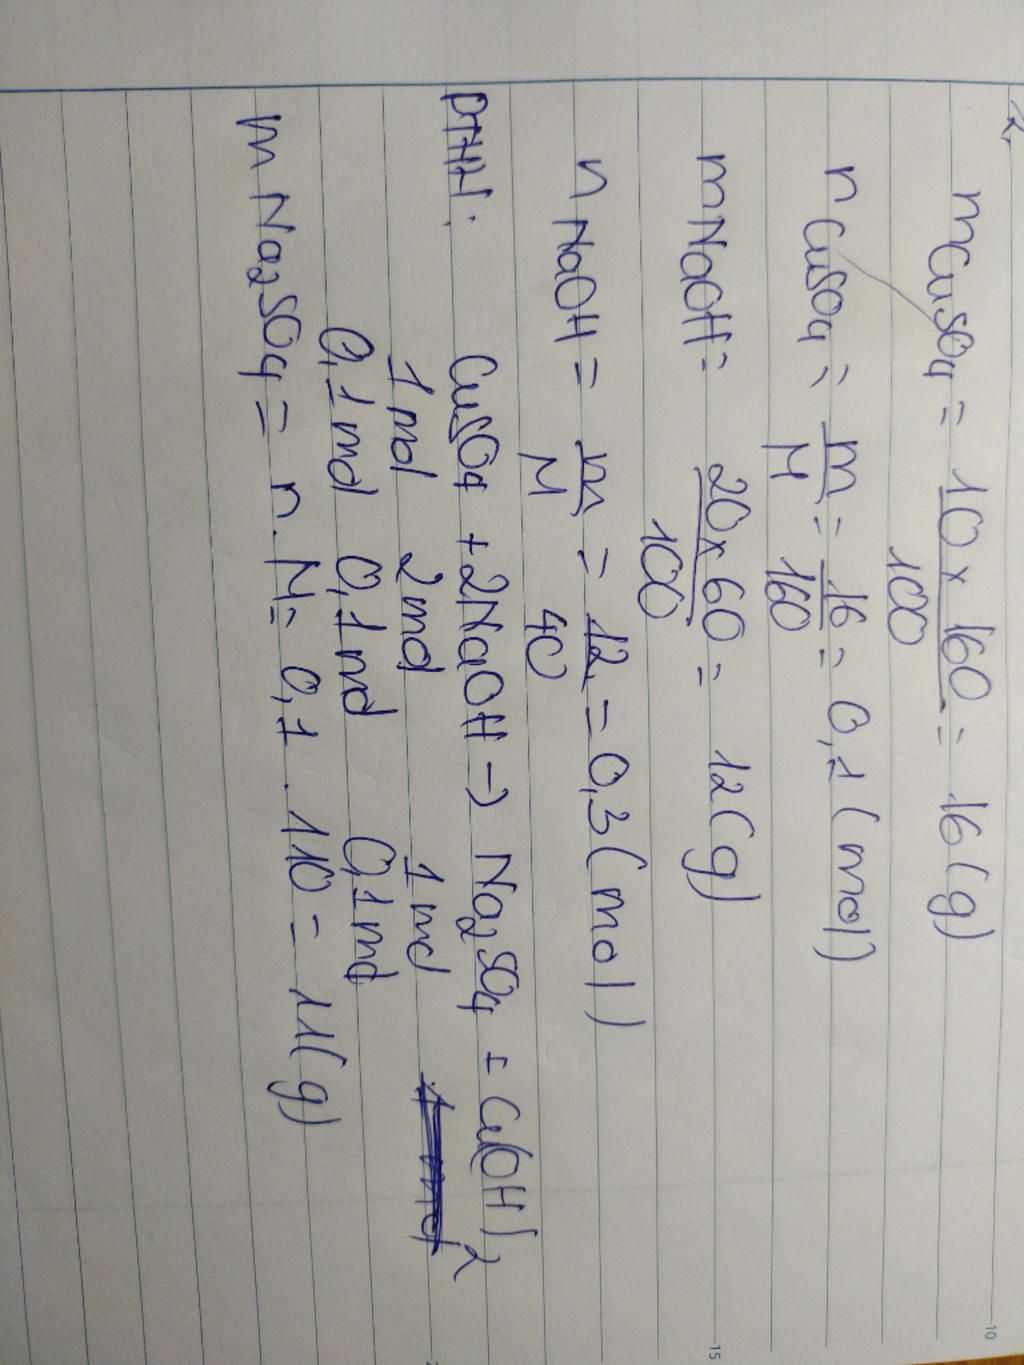 2,
mCuSO4 = 10 x 160 / 100 = 16 (g)
nCuSO4 = m/M = 16/160 = 0,1 (mol)
mNaOH = 20 x 60 / 100 = 12 (g)
nNaOH = m/M = 12/40 = 0,3 (mol)
PTHH: CuSO4 + 2NaOH → Na2SO4 + Cu(OH)2
1 mol 2 mol 1 mol
0,1 mol 0,1 mol 0,1 mol
m Na2SO4 = n . M = 0,1 . 110 = 11 (g)
10
15